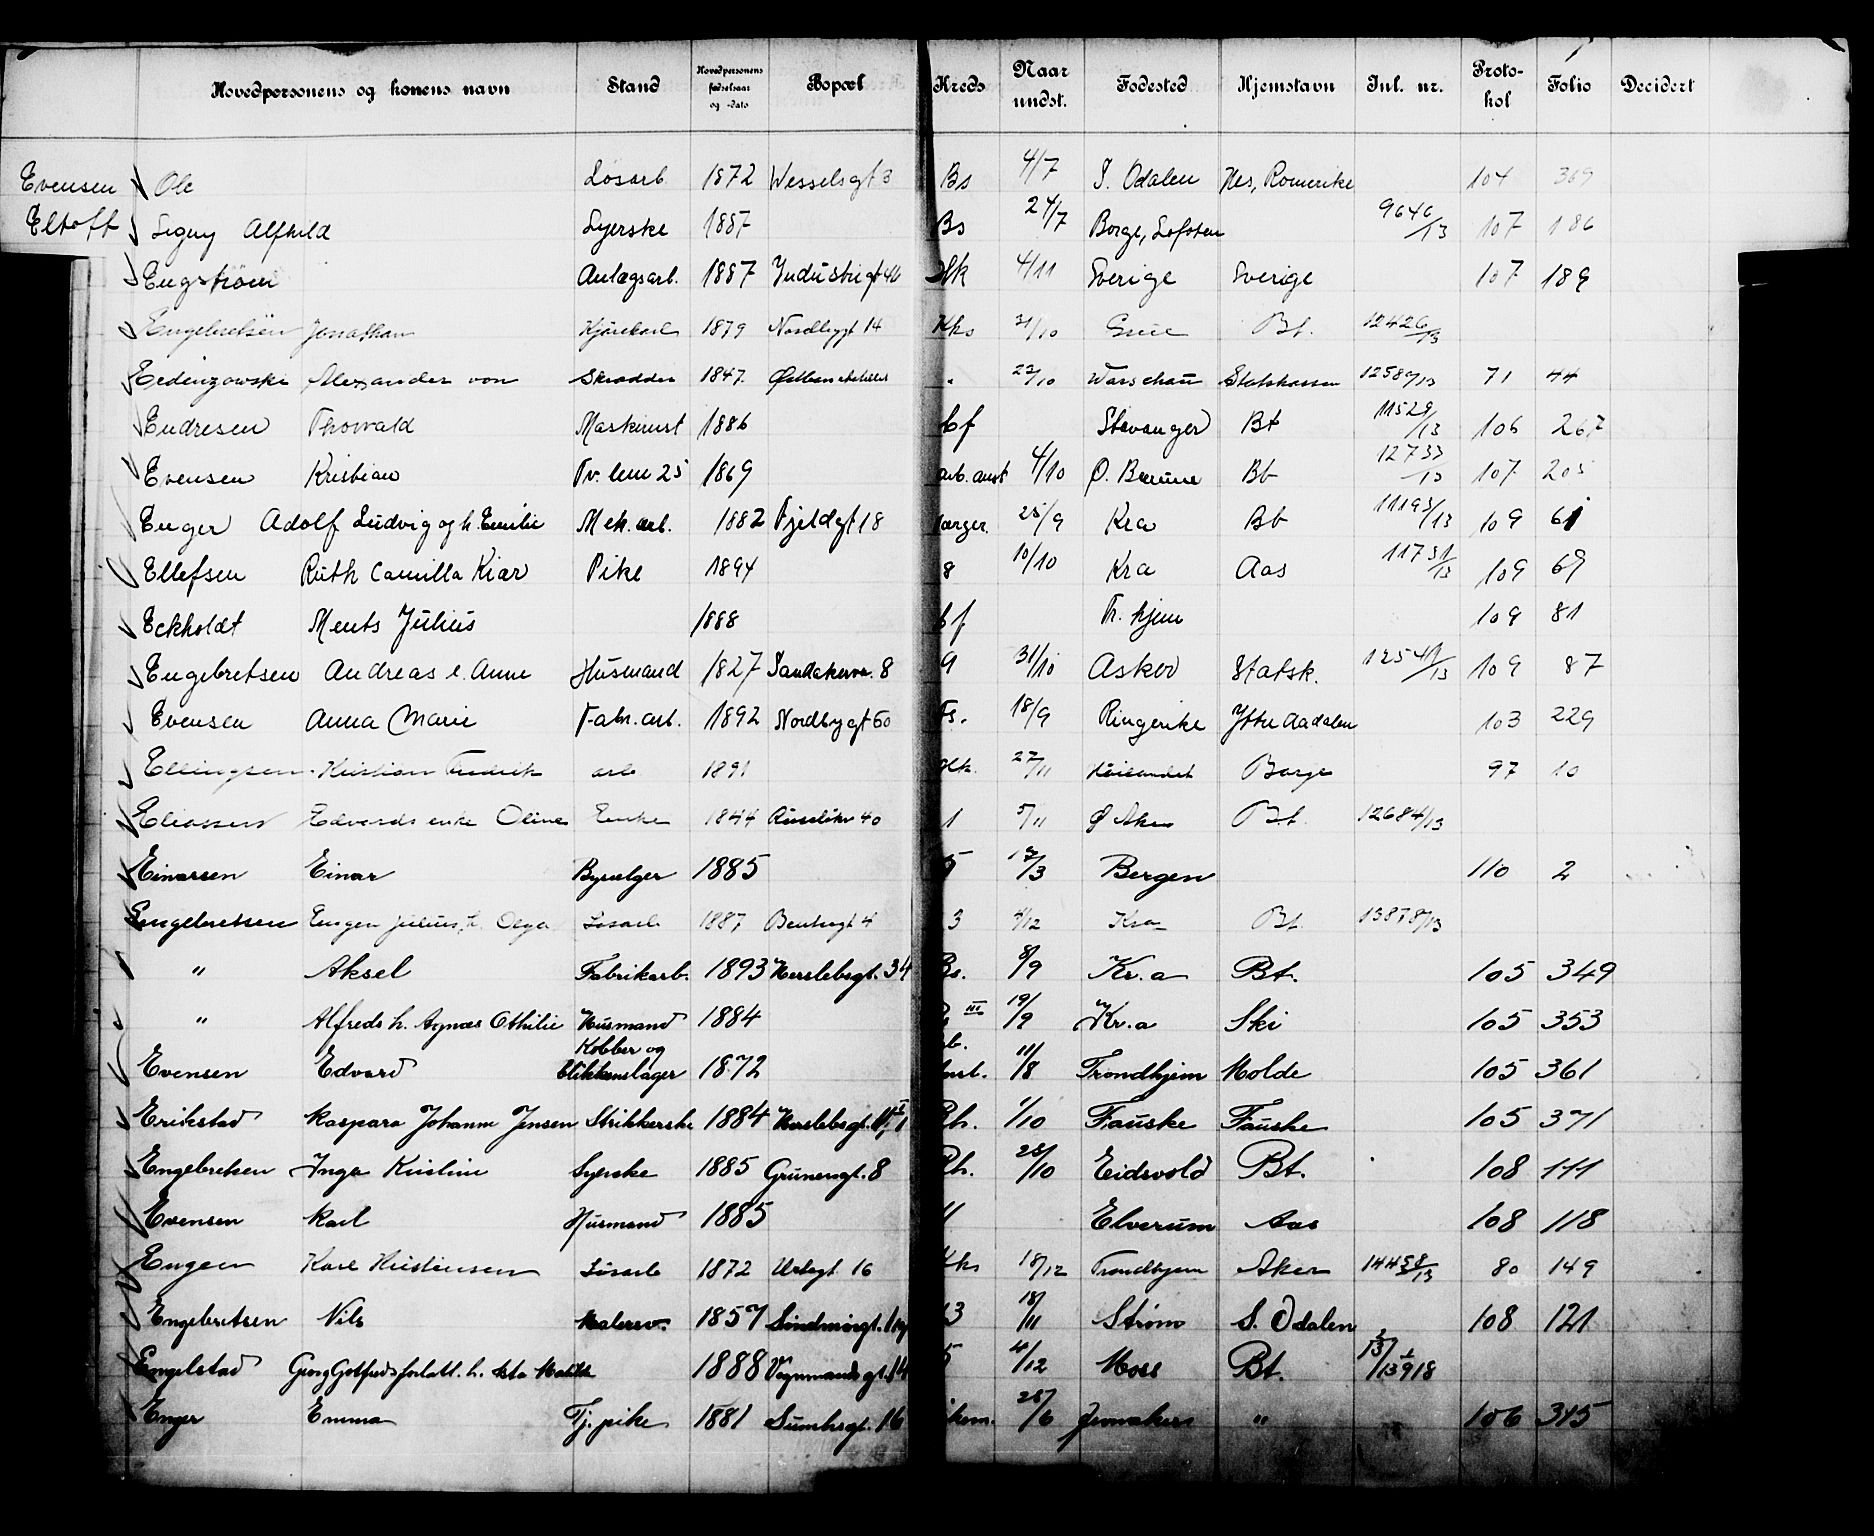 Hovedpersonens og konens navn Stand Hovedpersonens fødselsaar og -dato Bopæl Kreds Naar undst. Fødested Hjemstavn Jnl. nr. Protokol Folio Decidert
Evensen Ole Løsarb. 1872 Wesselsgt 3 Bs 4/7 S. Odalen Nes, Romerike 104 369
Eltoft Signy Alfhild Syerske 1887 Bs 24/7 Borge, Lofoten 9646/13 107 186
Engström Anlægsarb. 1887 Industrigt 46 4/11 Sverige Sverige 107 189
Engebretsen Jonathan Kjørekarl 1879 Nordbygt 14 Kks 31/10 Grue Bt. 12426/13
Alexander von Skrædder 1847 22/10 Warschau Statskassen 71 44
Endresen Thorvald Maskinist 1886 bf Stavanger Bt 11529/13 106 267
Evensen Kristian Tv. lem 25 1869 arb. anst 4/10 Bt 12733/13 107 205
Enger Adolf Ludvig og h. Emilie Mek. arb. 1882 Fjeldgt 18 25/9 Kra Bt 11193/13 109 61
Ellefsen Ruth Camilla Kiær Pike 1894 8 10/10 Kra Aas 11731/13 109 69
Eckholdt Ments Julius 1888 bf Th. hjem 109 81
Engebretsen Andreas e. Anne Husmand 1827 Sandakerv. 8 9 31/10 Asker Statsk. 12541/13 109 87
Evensen Anna Marie Fabr. arb. 1892 Nordbygt 60 Fs. 18/9 Ringerike Ytre Aadalen 103 229
Ellingsen Kristian Fredrik arb 1891 27/11 Borge 97 10
Eliassen Edvards enke Oline Enke 1844 40 1 5/11 Ø Aker Bt. 12684/13
Einarsen Einar Bysælger 1885 5 Bergen 110 2
Engebretsen Eugen Julius, h. Olga Løsarb 1887 3 4/12 Kra Bt. 13878/13
" Aksel Fabrikarb. 1893 Herslebsgt. 34 Bs. 8/9 Kr.a Bt. 105 349
" Alfreds h. Agnæs Othilie Husmand 1884 III 19/9 Kr.a Ski 105 353
Evensen Edvard Kobber og blikkenslager 1872 11/8 Trondhjem Molde 105 361
Erikstad Kaspara Johanne Jensen Strikkerske 1884 Herslebsgt. 1/10 Fauske Fauske 105 371
Engebretsen Inga Kristine Syerske 1885 Grünersgt. 8 25/10 Eidsvold Bt. 108 111
Evensen Karl Husmand 1885 11 Elverum Aas 108 118
Engen Karl Kristensen Løsarb 1872 Urtegt 16 Kks 18/12 Trondhjem Aker 14458/13 80 149
Engebretsen Nils Malersv. 1857 13 18/11 Strøm S. Odalen 108 121
Engelstad Georg Gotfreds forlatt. h. Asta Matilde 1888 Vognmandsgt. 14 5 4/12 Moss Bt.
Enger Emma Tj. pike 1881 16 Jevnaker " 106 345